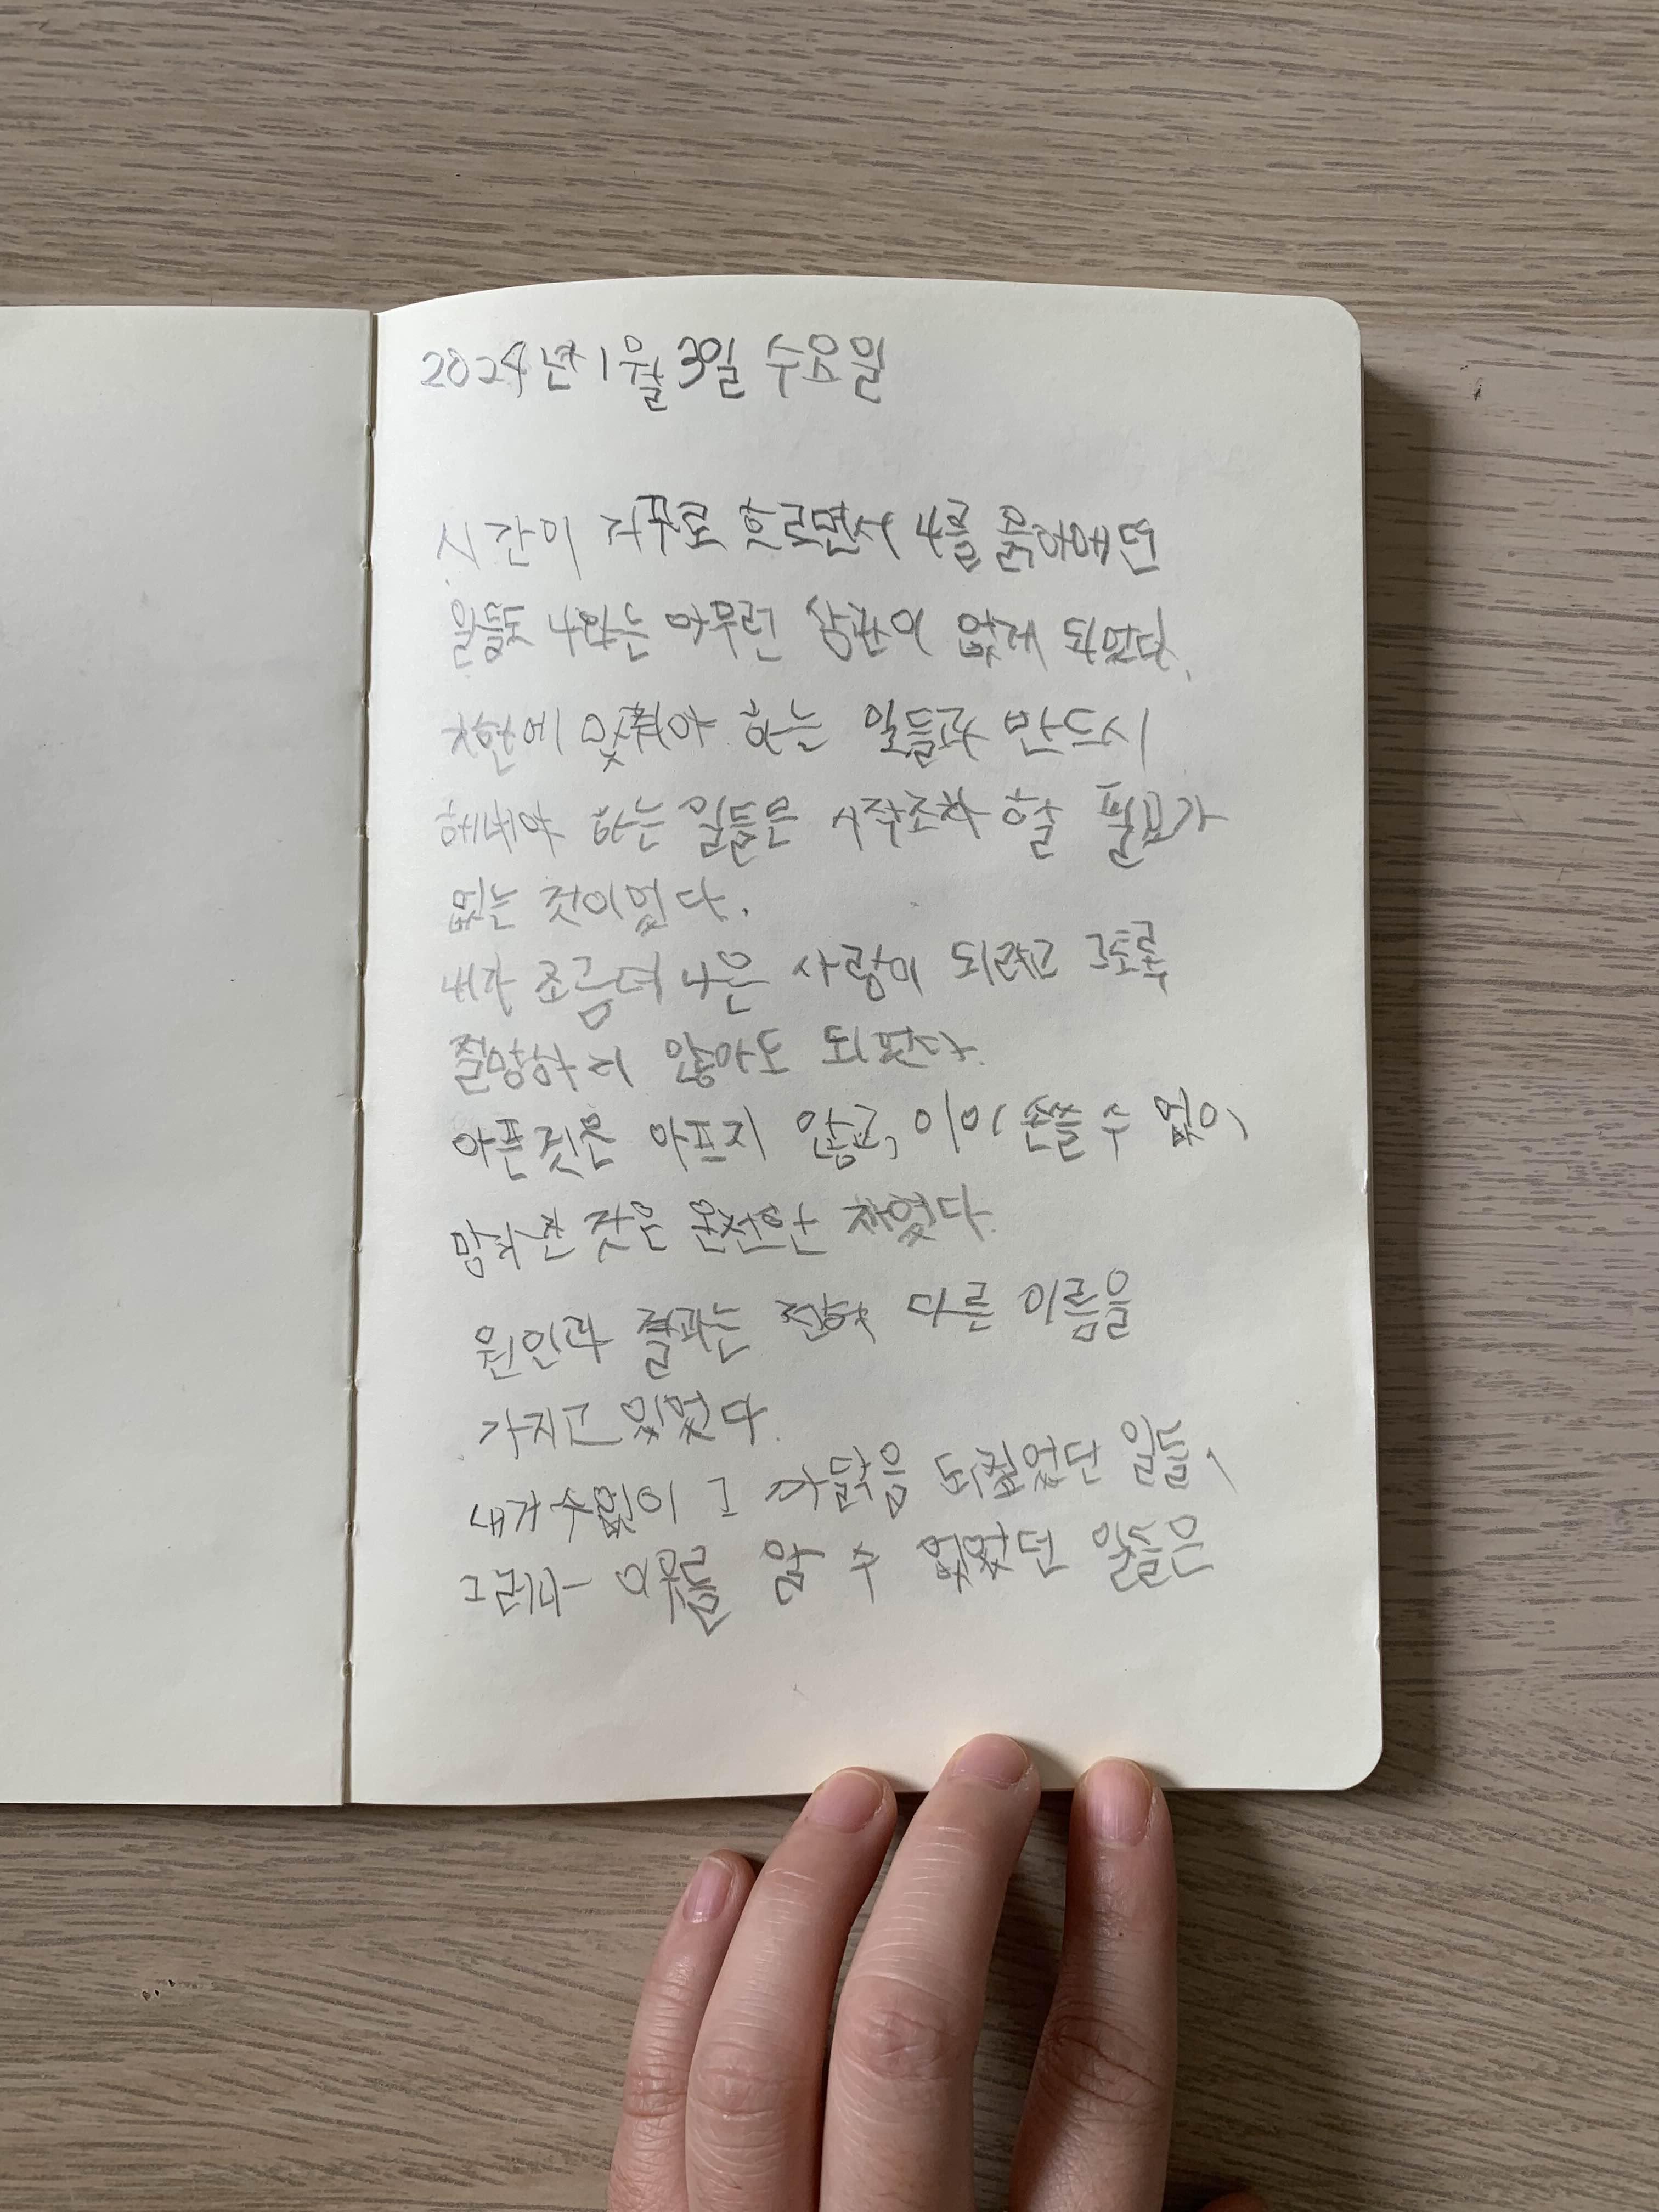 2024년 1월 3일 수요일
시간이 거꾸로 흐르면서 나를 옭아매던
일들도 나와는 아무런 상관이 없게 되었다.
기한에 맞춰야 하는 일들과 반드시
해내야 하는 일들은 시작조차 할 필요가
없는 것이었다.
내가 조금 더 나은 사람이 되려고 그토록
절망하지 않아도 되었다.
아픈것은 아프지 않고, 이미 손쓸 수 없이
망가진 것은 온전한 채였다.
원인과 결과는 전혀 다른 이름을
가지고 있었다.
내가 수없이 그 까닭을 되짚었던 일들,
그러나 이유를 알 수 없었던 일들은